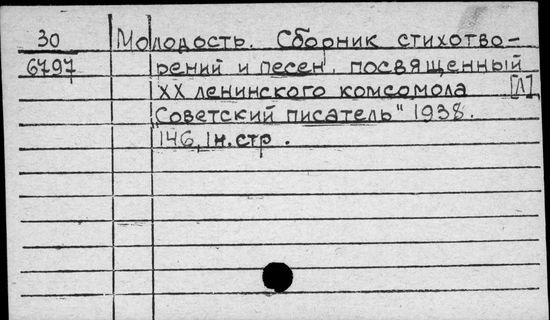 30 Молодость. Сборник стихотво-
6797 рений и песен, посвященный
XX ленинского комсомола [Л]
Советский писатель" 1938.
146, 1н.стр.